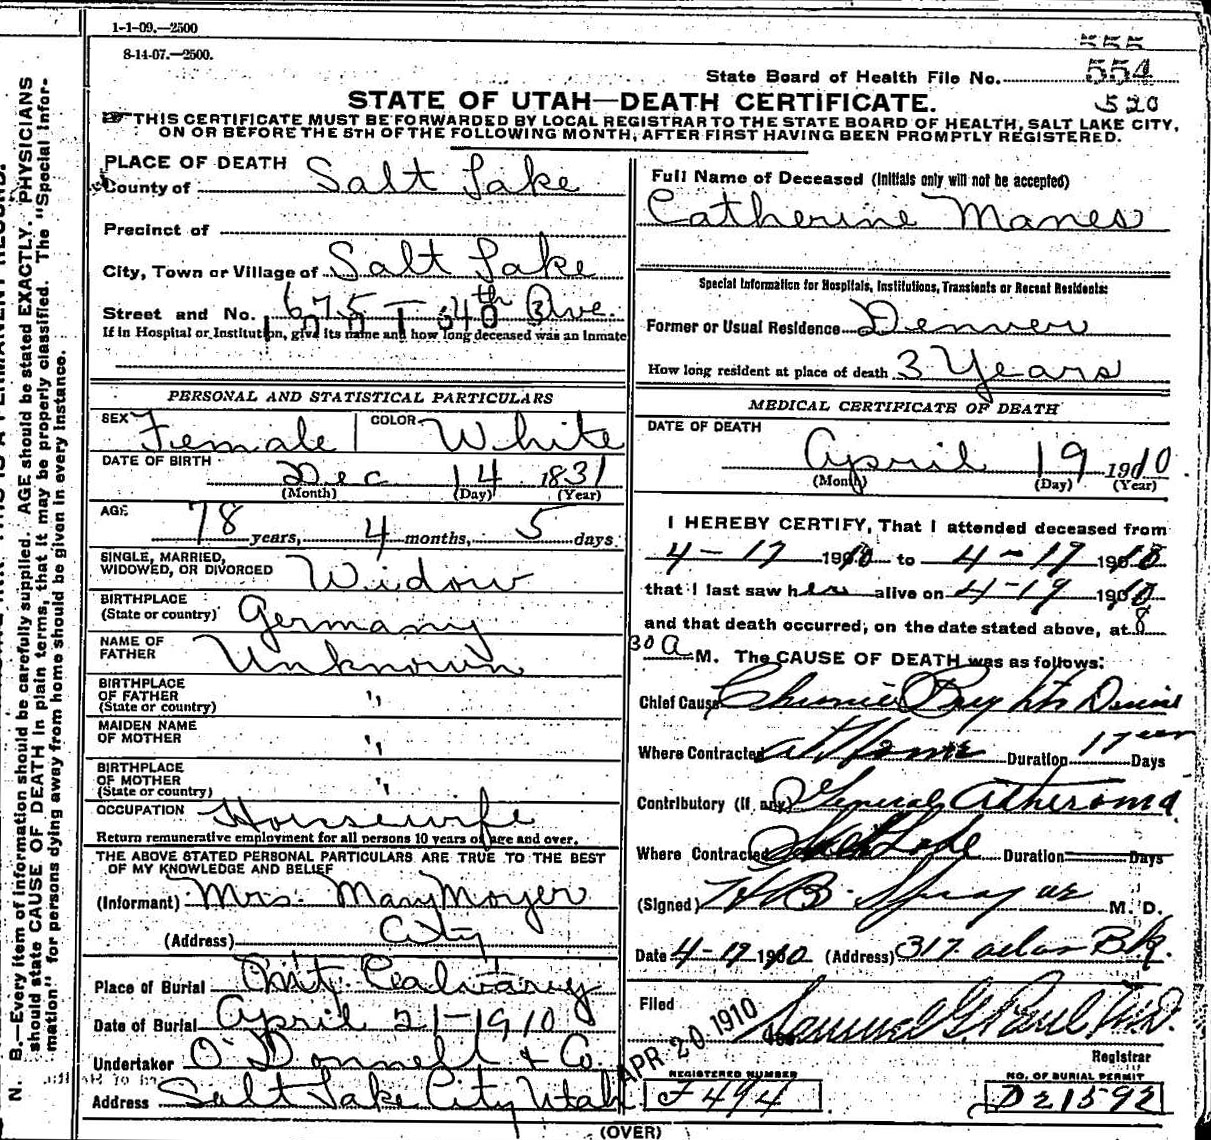 1-1-09.—2500
8-14-07.—2500.
555
State Board of Health File No. 554
520
STATE OF UTAH—DEATH CERTIFICATE.
THIS CERTIFICATE MUST BE FORWARDED BY LOCAL REGISTRAR TO THE STATE BOARD OF HEALTH, SALT LAKE CITY,
ON OR BEFORE THE 5TH OF THE FOLLOWING MONTH, AFTER FIRST HAVING BEEN PROMPTLY REGISTERED.
PLACE OF DEATH
County of Salt Lake
Precinct of
City, Town or Village of Salt Lake
Street and No. 675 - 4th Ave.
If in Hospital or Institution, give its name and how long deceased was an Inmate
PERSONAL AND STATISTICAL PARTICULARS
SEX Female COLOR White
DATE OF BIRTH Dec 14 1831
(Month) (Day) (Year)
AGE 78 years, 4 months, 5 days
SINGLE, MARRIED,
WIDOWED, OR DIVORCED Widow
BIRTHPLACE
(State or country) Germany
NAME OF
FATHER Unknown
BIRTHPLACE
OF FATHER "
(State or country)
MAIDEN NAME
OF MOTHER "
BIRTHPLACE
OF MOTHER "
(State or country)
OCCUPATION Housewife
Return remunerative employment for all persons 10 years of age and over.
THE ABOVE STATED PERSONAL PARTICULARS ARE TRUE TO THE BEST
OF MY KNOWLEDGE AND BELIEF
(Informant) Mrs. Mary Moyer
(Address) City
Place of Burial Mt. Calvary
Date of Burial April 21-1910
Undertaker O'Donnell & Co.
Address Salt Lake City Utah
Full Name of Deceased (Initials only will not be accepted)
Catherine Manes
Special Information for Hospitals, Institutions, Transients or Recent Residents:
Former or Usual Residence Denver
How long resident at place of death 3 Years
MEDICAL CERTIFICATE OF DEATH
DATE OF DEATH
April 19 1910
(Month) (Day) (Year)
I HEREBY CERTIFY, That I attended deceased from
4-17 1910 to 4-19 1910
that I last saw her alive on 4-19 1910
and that death occurred, on the date stated above, at 8
30 A M. The CAUSE OF DEATH was as follows:
Chief Cause Chronic Brights Disease
Where Contracted At Home Duration 1 year Days
Contributory (If any) General Atheroma
Where Contracted Salt Lake Duration Days
(Signed) H B. Sprague M. D.
Date 4-19 1910 (Address) 317 Atlas Bk.
Filed APR 20 1910 Samuel G. Paul, M.D.
Registrar
REGISTERED NUMBER
F494
NO. OF BURIAL PERMIT
D21592
(OVER)
N. B.—Every item of information should be carefully supplied. AGE should be stated EXACTLY. PHYSICIANS
should state CAUSE OF DEATH in plain terms, that it may be properly classified. The "Special Infor-
mation" for persons dying away from home should be given in every instance.